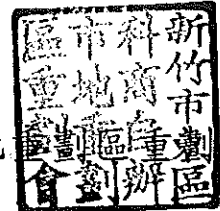 新竹市劃區
科商自辦
市地重劃
區重劃會